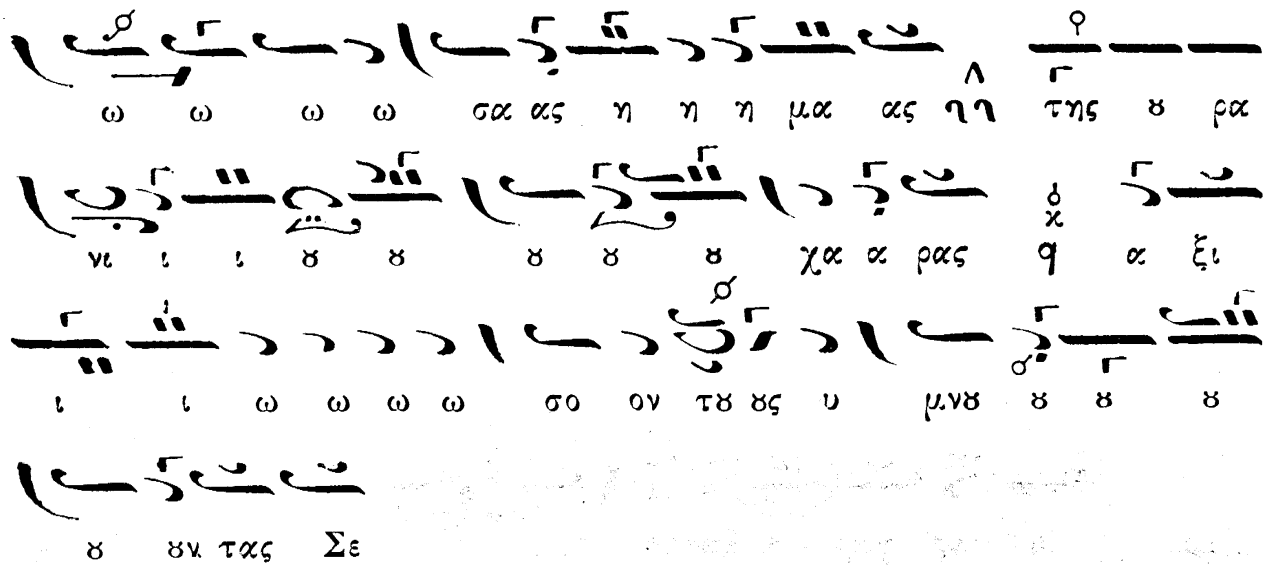 ω ω ω ω σα ας η η η μα ας ηη της ȣ ρα
νι ι ι ȣ ȣ ȣ ȣ ȣ χα α ρας q α ξι
ι ι ω ω ω ω σο ον τȣ ȣς υ μνȣ ȣ ȣ ȣ
ȣ ȣν τας Σε